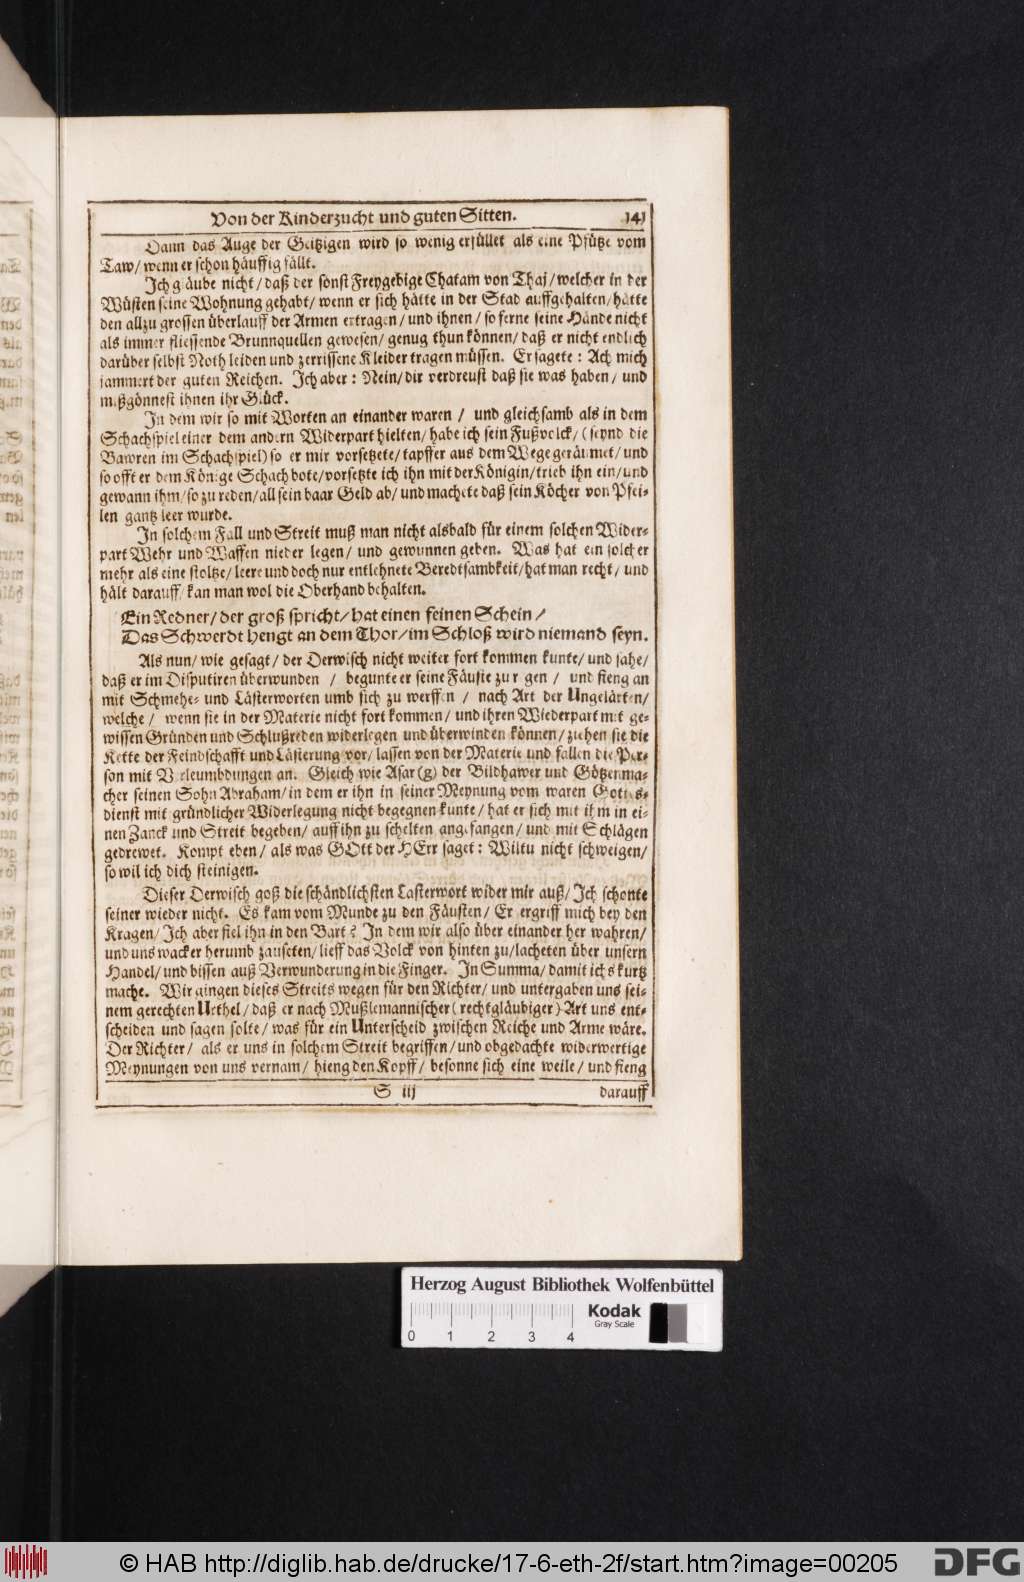 Von der Kinderzucht und guten Sitten. 141
Dann das Auge der Geitzigen wird so wenig erfüllet als eine Pfütze vom
Taw/ wenn er schon häuffig fällt.
Ich gläube nicht/ daß der sonst Freygebige Chatam von Thaj/ welcher in der
Wüsten seine Wohnung gehabt/ wenn er sich hätte in der Stad auffgehalten/ hätte
den allzu grossen überlauff der Armen ertragen/ und ihnen/ so ferne seine Hände nicht
als immer fliessende Brunnquellen gewesen/ genug thun können/ daß er nicht endlich
darüber selbst Noth leiden und zerrissene Kleider tragen müssen. Er sagete: Ach mich
jammert der guten Reichen. Ich aber: Nein/ dir verdreust daß sie was haben/ und
mißgönnest ihnen ihr Glück.
In dem wir so mit Worten an einander waren/ und gleichsamb als in dem
Schachspiel einer dem andern Widerpart hielten/ habe ich sein Fußvolck/ (seynd die
Bawren im Schachspiel) so er mir vorsetzete/ tapffer aus dem Wege geräumet/ und
so offt er dem Könige Schach bote/ vorsetzte ich ihn mit der Königin/ trieb ihn ein/ und
gewann ihm/ so zu reden/ all sein baar Geld ab/ und machete daß sein Köcher von Pfei-
len gantz leer wurde.
In solchem Fall und Streit muß man nicht alsbald für einem solchen Wider-
part Wehr und Waffen nieder legen/ und gewunnen geben. Was hat ein solcher
mehr als eine stoltze/ leere und doch nur entlehnete Beredtsambkeit/ hat man recht/ und
hält darauff/ kan man wol die Oberhand behalten.
Ein Redner/ der groß spricht/ hat einen feinen Schein/
Das Schwerdt hengt an dem Thor/ im Schloß wird niemand seyn.
Als nun/ wie gesagt/ der Derwisch nicht weiter fort kommen kunte/ und sahe/
daß er im Disputiren überwunden/ begunte er seine Fäuste zu r gen/ und fieng an
mit Schmehe- und Lästerworten umb sich zu werffen/ nach Art der Ungelärten/
welche/ wenn sie in der Materie nicht fort kommen/ und ihren Wiederpart mit ge-
wissen Gründen und Schlußreden widerlegen und überwinden können/ ziehen sie die
Kette der Feindschafft und Lästerung vor/ lassen von der Materie und fallen die Per-
son mit Verleumbdungen an. Gleich wie Asar (g) der Bildhawer und Götzenma-
cher seinen Sohn Abraham/ in dem er ihn in seiner Meynung vom waren Gottes-
dienst mit gründlicher Widerlegung nicht begegnen kunte/ hat er sich mit ihm in ei-
nen Zanck und Streit begeben/ auff ihn zu schelten angefangen/ und mit Schlägen
gedrewet. Kompt eben/ als was GOtt der HErr saget: Wiltu nicht schweigen/
so wil ich dich steinigen.
Dieser Derwisch goß die schändlichsten Lasterwort wider mir auß/ Ich schonte
seiner wieder nicht. Es kam vom Munde zu den Fäusten/ Er ergriff mich bey den
Kragen/ Ich aber fiel ihn in den Bart? In dem wir also über einander her wahren/
und uns wacker herumb zauseten/ lieff das Volck von hinten zu/ lacheten über unsern
Handel/ und bissen auß Verwunderung in die Finger. In Summa/ damit ichs kurtz
mache. Wir gingen dieses Streits wegen für den Richter/ und untergaben uns sei-
nem gerechten Urthel/ daß er nach Mußlemannischer (rechtgläubiger) Art uns ent-
scheiden und sagen solte/ was für ein Unterscheid zwischen Reiche und Arme wäre.
Der Richter/ als er uns in solchem Streit begriffen/ und obgedachte widerwertige
Meynungen von uns vernam/ hieng den Kopff/ besonne sich eine weile/ und fieng
S iij darauff
Herzog August Bibliothek Wolfenbüttel
Kodak
Gray Scale
0 1 2 3 4
© HAB http://diglib.hab.de/drucke/17-6-eth-2f/start.htm?image=00205
DFG